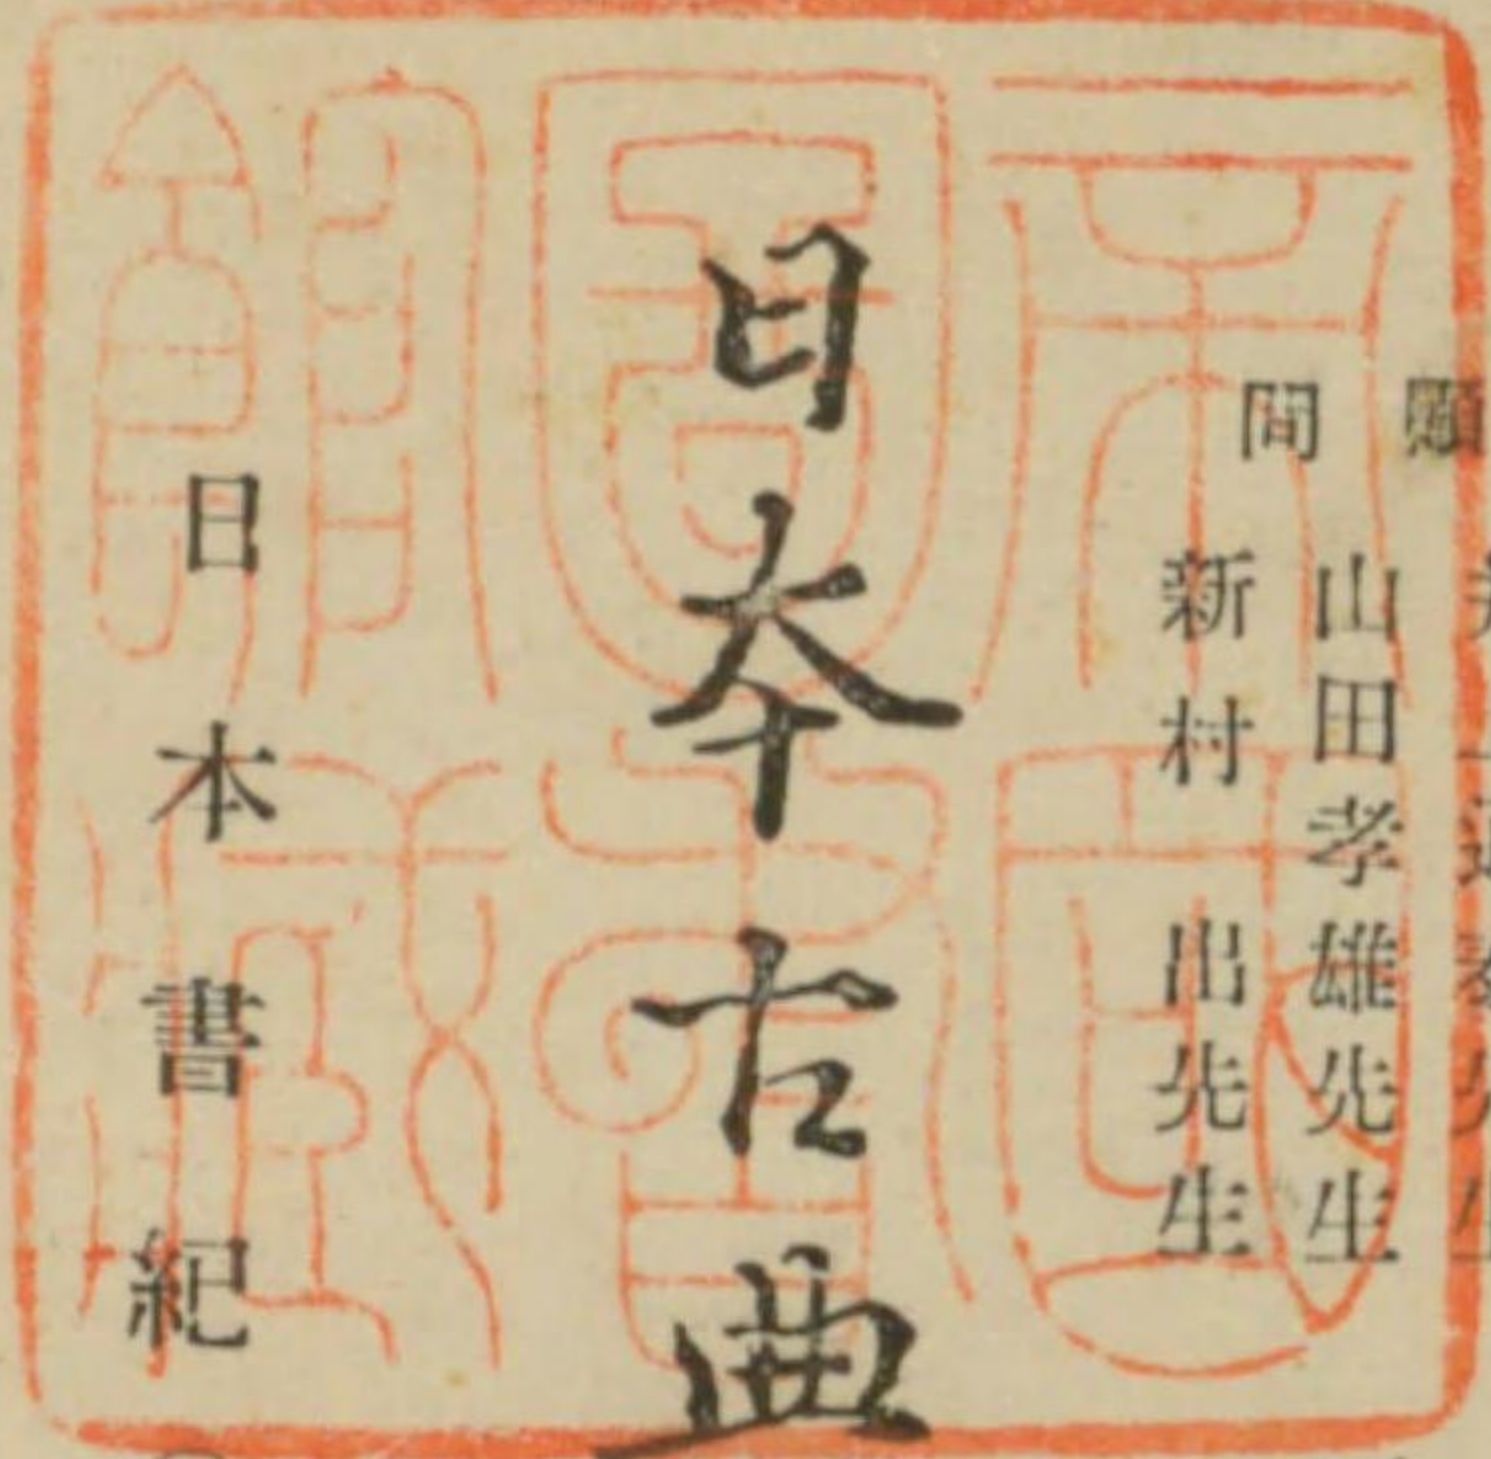 顧問
山田孝雄先生
新村出先生
日本古典
日本書紀
帝國圖書館藏